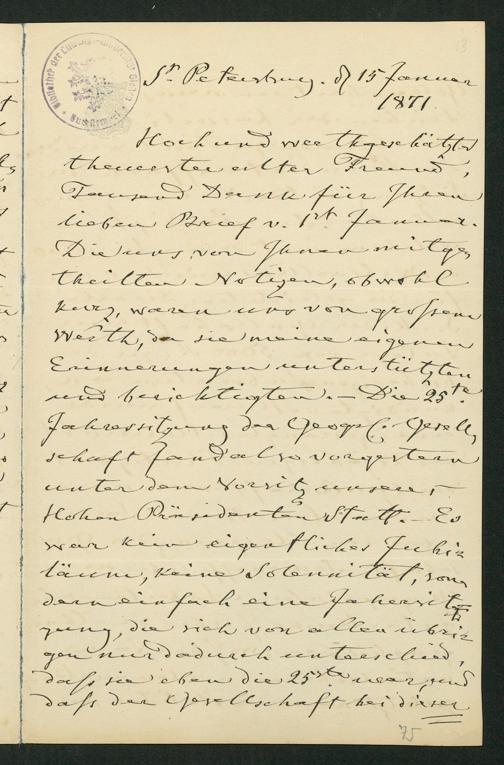 St. Petersburg. d 15 Januar
1871.
Hoch und werthgeschätzter
theuerster alter Freund,
Tausend Dank für Ihren
lieben Brief v. 1st Januar.
Die uns von Ihnen mitge
theilten Notizen, obwohl
kurz, waren uns von grossem
Werth, da sie meine eigenen
Erinnerungen unterstützten
und berichtigten. – Die 25te
Jahressitzung der Geogr. Gesell
schaft fand also vorgestern
unter dem Vorsitz unseres
Hohen Präsidenten Statt. – Es
war kein eigentliches Jubi
läum, keine Solennität, son
dern einfach eine Jahressit
zung, die sich von allen übri
gen nur dadurch unterschied,
daß sie eben die 25ste war, und
daß der Gesellschaft bei dieser
75
13